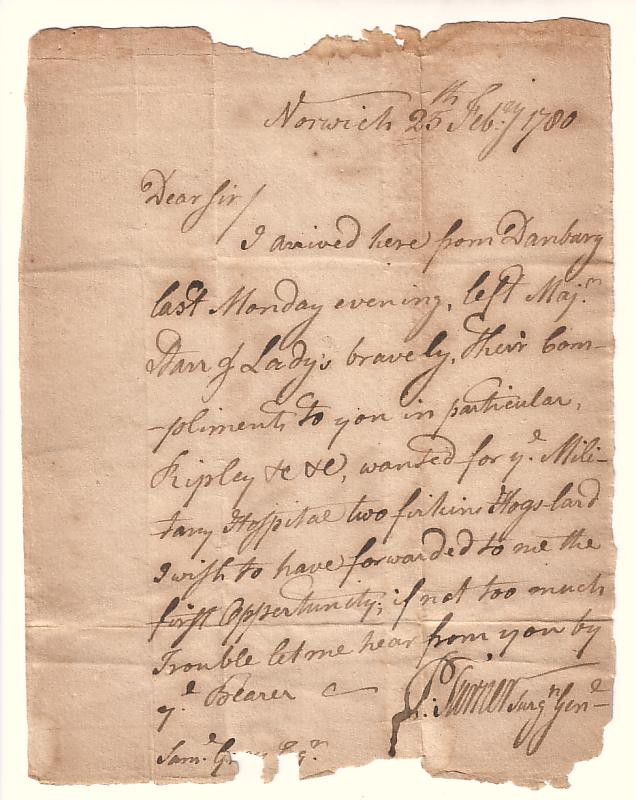 Norwich 25th Feb:ry 1780
Dear Sir /
I arived here from Danbury
last Monday evening, left Maj:r
Starr & Lady's bravely, their Com-
-pliments to you in particular,
Ripley &c &c, wanted for ye Mili-
tary Hospital two firkins Hogs lard
I wish to have forwarded to me the
first Oppertunity; if not too much
Trouble let me hear from you by
ye Bearer
P: Turner Surgn Genl
Saml G Esqr